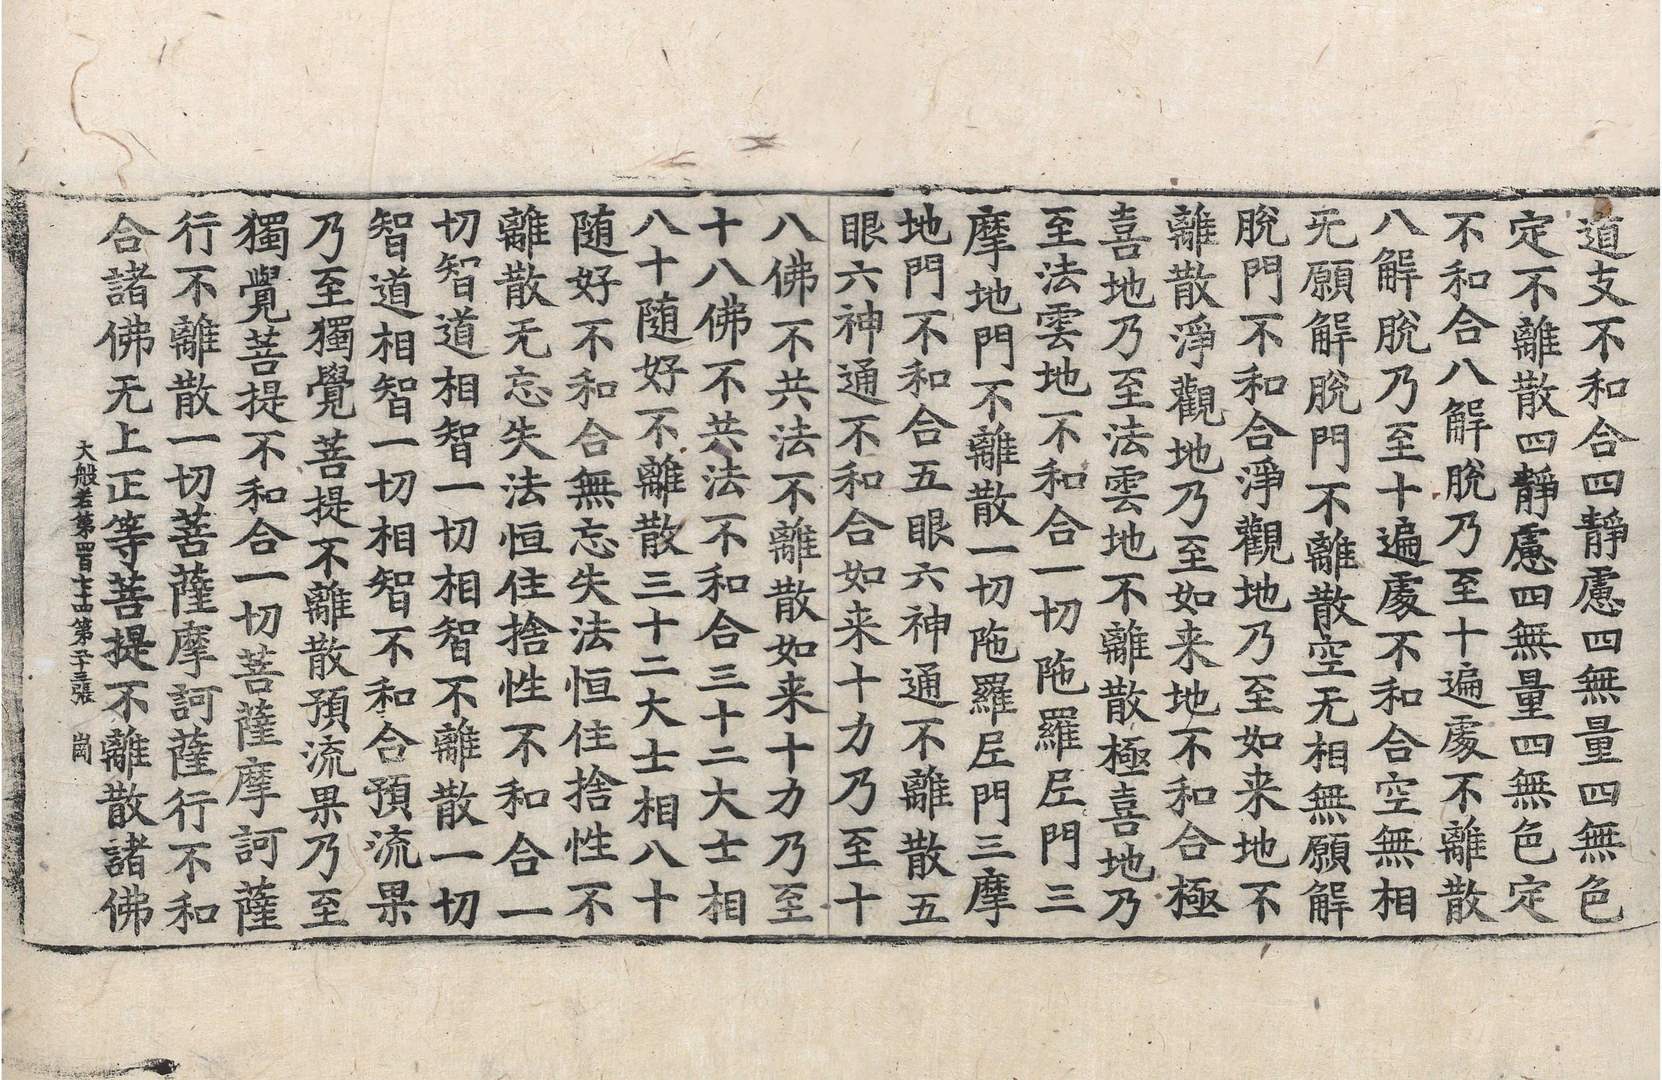 道支不和合四靜慮四無量四無色
定不離散四靜慮四無量四無色定
不和合八解脫乃至十遍處不離散
八解脫乃至十遍處不和合空無相
无願解脫門不離散空无相無願解
脫門不和合淨觀地乃至如来地不
離散淨觀地乃至如来地不和合極
喜地乃至法雲地不離散極喜地乃
至法雲地不和合一切陁羅𡰱門三
摩地門不離散一切陁羅𡰱門三摩
地門不和合五眼六神通不離散五
眼六神通不和合如来十力乃至十
八佛不共法不離散如来十力乃至
十八佛不共法不和合三十二大士相
八十随好不離散三十二大士相八十
随好不和合無忘失法恒住捨性不
離散无忘失法恒住捨性不和合一
切智道相智一切相智不離散一切
智道相智一切相智不和合預流果
乃至獨覺菩提不離散預流果乃至
獨覺菩提不和合一切菩薩摩訶薩
行不離散一切菩薩摩訶薩行不和
合諸佛无上正等菩提不離散諸佛
大般若第四百七十四 第二十三張 崗